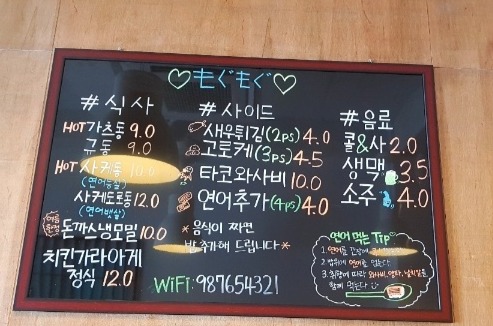 ♡もぐもぐ♡
#식사
HOT 가츠동 9.0
규동 9.0
HOT 사케동 10.0
(연어등살)
사케도로동 12.0
(연어뱃살)
돈까스냉모밀 10.0
치킨가라아게
정식 12.0
#사이드
새우튀김(2ps) 4.0
고토케(3ps) 4.5
타코와사비 10.0
연어추가(4ps) 4.0
* 음식이 짜면
밥 추가해 드립니다 *
WiFi: 987654321
#음료
콜&사 2.0
생맥 3.5
소주 4.0
연어 먹는 Tip
1. 연어를 간장에
2. 밥위에 연어를 얹는다
3. 취향에 따라 와사비, 양파,
함께 먹는다